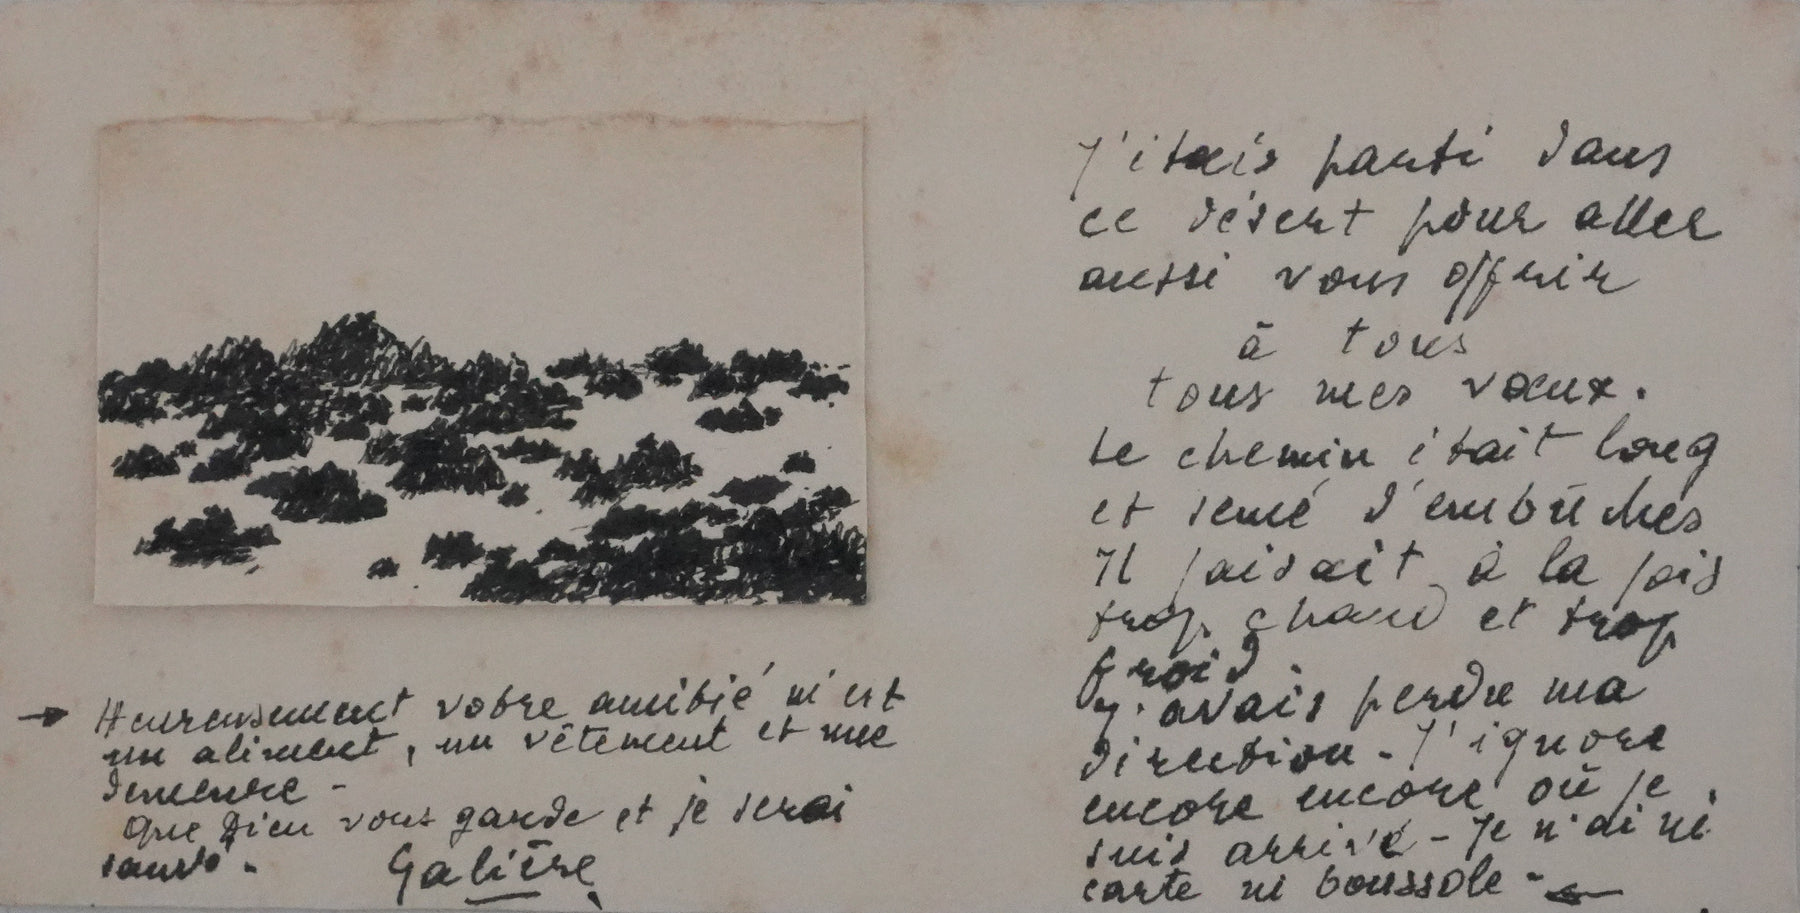 J'étais parti dans
ce désert pour aller
aussi vous offrir
à tous
tous mes vœux.
Le chemin était long
et semé d'embûches
Il faisait à la fois
trop chaud et trop
froid
J'avais perdu ma
direction - J'ignore
encore encore où je
suis arrivé - Je n'ai ni
carte ni boussole - ←
→ Heureusement votre amitié m'est
un aliment, un vêtement et une
demeure -
Que Dieu vous garde et je serai
sauvé.
Galière